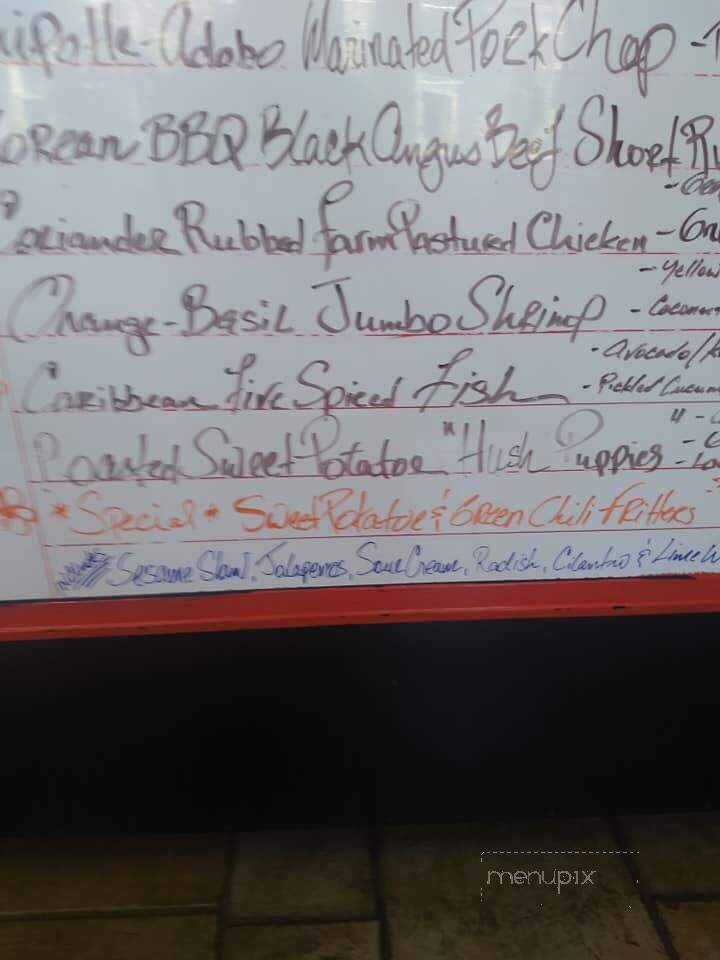 hipotle-Adobo Marinated Pork Chop -
Korean BBQ Black Angus Beef Short Ri
Coriander Rubbed Farm Pastured Chicken -
- Yellow
Orange-Basil Jumbo Shrimp - Coconut
- Avocado/
Caribbean Fire Spiced Fish - Pickled Cucum
Roasted Sweet Potatoe "Hush Puppies"
*Special* Sweet Potatoe & Green Chili Fritters
Sesame Slaw, Jalapenos, Sour Cream, Radish, Cilantro & Lime W
menupix